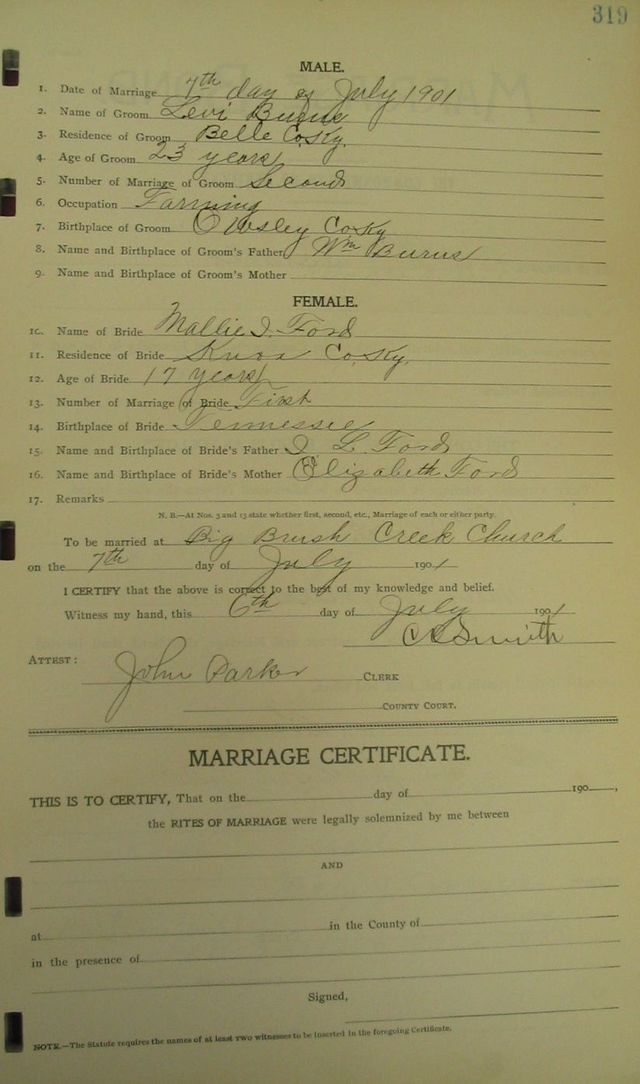 319
MALE.
1. Date of Marriage 7th day of July 1901
2. Name of Groom Levi Burns
3. Residence of Groom Belle Co Ky.
4. Age of Groom 23 years
5. Number of Marriage of Groom Second
6. Occupation Farming
7. Birthplace of Groom Owsley Co Ky
8. Name and Birthplace of Groom's Father Wm Burns
9. Name and Birthplace of Groom's Mother
FEMALE.
10. Name of Bride Mallie I. Ford
11. Residence of Bride Knox Co, Ky.
12. Age of Bride 17 years
13. Number of Marriage of Bride First
14. Birthplace of Bride Tennessee
15. Name and Birthplace of Bride's Father I L Ford
16. Name and Birthplace of Bride's Mother Elizabeth Ford
17. Remarks
N. B.—At Nos. 5 and 13 state whether first, second, etc., Marriage of each or either party.
To be married at Big Brush Creek Church
on the 7th day of July 1901
I CERTIFY that the above is correct to the best of my knowledge and belief.
Witness my hand, this 6th day of July 1901
Smith
ATTEST: John Parker CLERK
COUNTY COURT.
MARRIAGE CERTIFICATE.
THIS IS TO CERTIFY, That on the day of 190 ,
the RITES OF MARRIAGE were legally solemnized by me between
AND
at in the County of
in the presence of
Signed,
NOTE.—The Statute requires the names of at least two witnesses to be inserted in the foregoing Certificate.